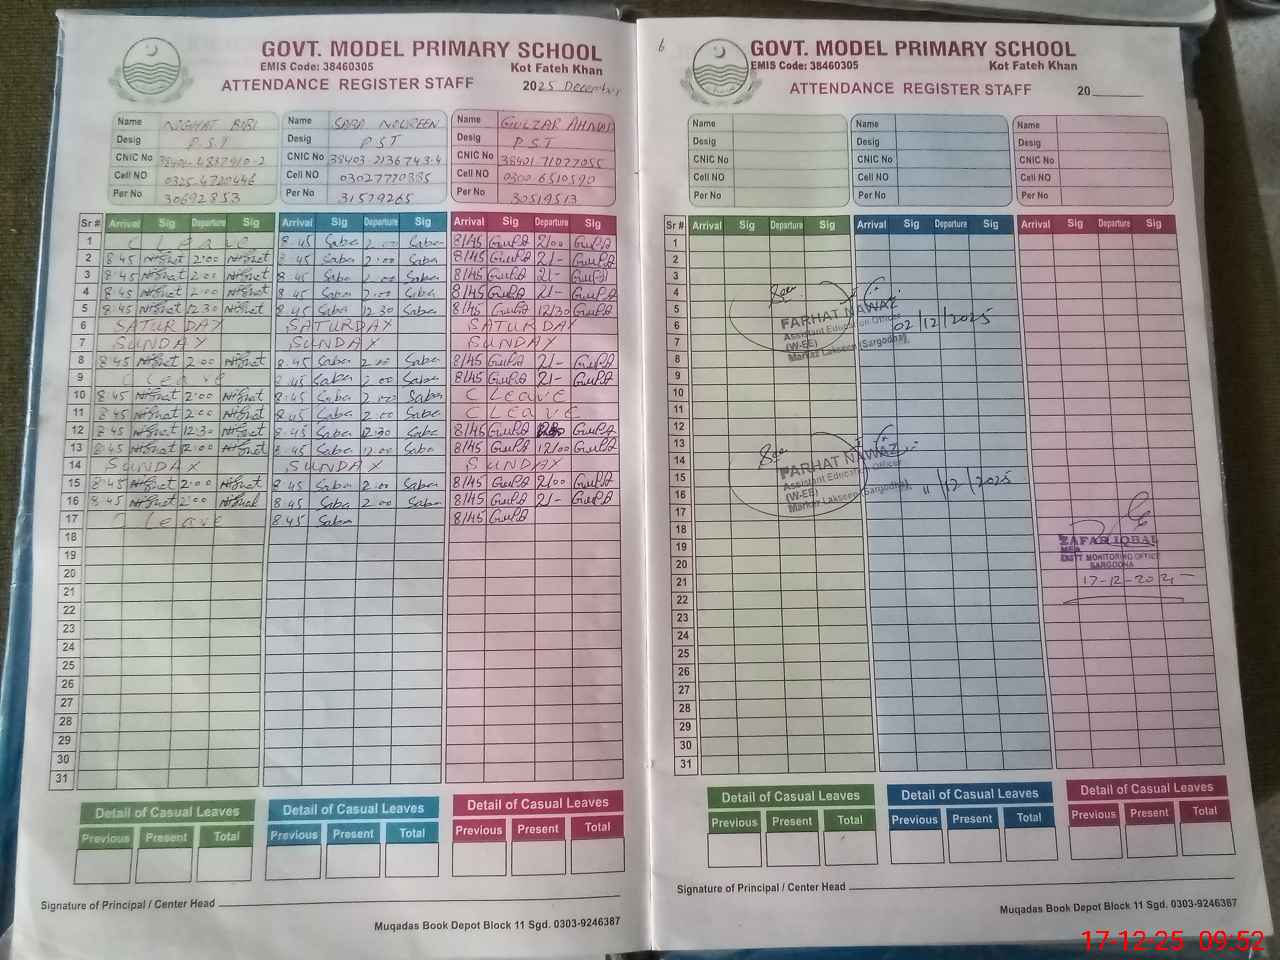 GOVT. MODEL PRIMARY SCHOOL
EMIS Code: 38460305
Kot Fateh Khan
ATTENDANCE REGISTER STAFF
2025 December
Name NIGHAT BIBI
Desig PST
CNIC No 38401-4837910-2
Cell NO 0325-4720446
Per No 30692853
Name SABA NOUREEN
Desig PST
CNIC No 38403-2136743-4
Cell NO 03027770385
Per No 31579265
Name GULZAR AHMAD
Desig PST
CNIC No 38401-71077055
Cell NO 0300-6510590
Per No 30519513
Sr # Arrival Sig Departure Sig Arrival Sig Departure Sig Arrival Sig Departure Sig
1 C Leave 8:45 Saba 2:00 Saba 8/45 2/00
2 8:45 Nighat 2:00 Nighat 8:45 Saba 2:00 Saba 8/45 2/-
3 8:45 Nighat 2:00 Nighat 8:45 Saba 2:00 Saba 8/45 2/-
4 8:45 Nighat 2:00 Nighat 8:45 Saba 2:00 Saba 8/45 2/-
5 8:45 Nighat 12:30 Nighat 8:45 Saba 12:30 Saba 8/45 12/30
6 SATURDAY SATURDAY SATURDAY
7 SUNDAY SUNDAY SUNDAY
8 8:45 Nighat 2:00 Nighat 8:45 Saba 2:00 Saba 8/45 2/-
9 C Leave 8:45 Saba 2:00 Saba 8/45 2/-
10 8:45 Nighat 2:00 Nighat 8:45 Saba 2:00 Saba C Leave
11 8:45 Nighat 2:00 Nighat 8:45 Saba 2:00 Saba C Leave
12 8:45 Nighat 12:30 Nighat 8:45 Saba 12:30 Saba 8/45
13 8:45 Nighat 12:00 Nighat 8:45 Saba 12:00 Saba 8/45 12/00
14 SUNDAY SUNDAY SUNDAY
15 8:45 Nighat 2:00 Nighat 8:45 Saba 2:00 Saba 8/45 2/00
16 8:45 Nighat 2:00 Nighat 8:45 Saba 2:00 Saba 8/45 2/-
17 C Leave 8:45 Saba 8/45
18
19
20
21
22
23
24
25
26
27
28
29
30
31
Detail of Casual Leaves Detail of Casual Leaves Detail of Casual Leaves
Previous Present Total Previous Present Total Previous Present Total
Signature of Principal / Center Head
Muqadas Book Depot Block 11 Sgd. 0303-9246387
6
GOVT. MODEL PRIMARY SCHOOL
EMIS Code: 38460305
Kot Fateh Khan
ATTENDANCE REGISTER STAFF
20
Name
Desig
CNIC No
Cell NO
Per No
Name
Desig
CNIC No
Cell NO
Per No
Name
Desig
CNIC No
Cell NO
Per No
Sr # Arrival Sig Departure Sig Arrival Sig Departure Sig Arrival Sig Departure Sig
1
2
3
4
5
6
7
8
9
10
11
12
13
14
15
16
17
18
19
20
21
22
23
24
25
26
27
28
29
30
31
See
FARHAT NAWAZ
Assistant Education Officer
(W-EE)
Markaz Lakseen (Sargodha)
02/12/2025
See
FARHAT NAWAZ
Assistant Education Officer
(W-EE)
Markaz Lakseen (Sargodha)
11/12/2025
ZAFAR IQBAL
MEA
DISTT MONITORING OFFICE
SARGODHA
17-12-2025
Detail of Casual Leaves Detail of Casual Leaves Detail of Casual Leaves
Previous Present Total Previous Present Total Previous Present Total
Signature of Principal / Center Head
Muqadas Book Depot Block 11 Sgd. 0303-9246387
17-12-25 09:52